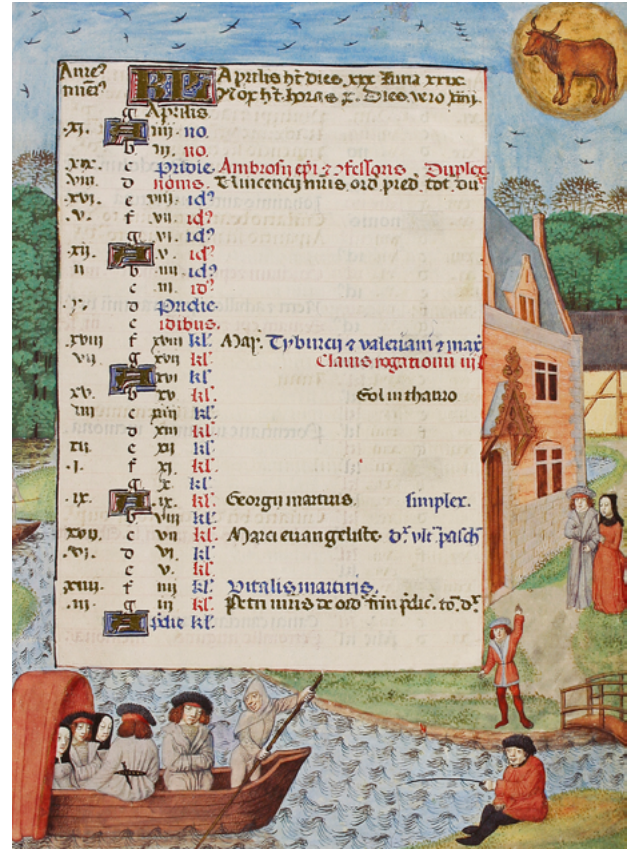 Aure⁹ KL Aprilis ht dies xxx luna xxix.
nūer⁹ Nox ht horas x. Dies vero xiiij.
g Aprilis
.xi. A iiij no.
b iij no.
.xix. c Pridie Ambrosij epi z ꝯfessoris Duplex
viij. d nonis. Vincencij mris ord pred' tot. du
.xvi. e viij id⁹
.v. f vij id⁹
g vi. id⁹
.xij. A v. id⁹
ij b iiij id⁹
c iij id⁹
.x. d Pridie
e idibus.
.xviij f xviij kl' May. Tyburcij z valeriani z max
vij g xvij kl' Clauis rogationū iiij
A xvi kl'
.xv. b xv kl' Sol in thauro
iiij c xiiij kl'
d xiij kl'
xij. e xij kl'
.i. f xi. kl'
g x. kl'
.ix. A ix. kl' Georgij martiris. simplex.
b viij kl'
xvij c vij kl' Marci euangeliste d⁹ vlt⁹ pasch
.vi. d vi. kl'
e v. kl'
xiiij f iiij kl' Vitalis martiris.
.iij. g iij kl' Petri mris de ord' frm p̄dic. to. d⁹
A pdie kl'